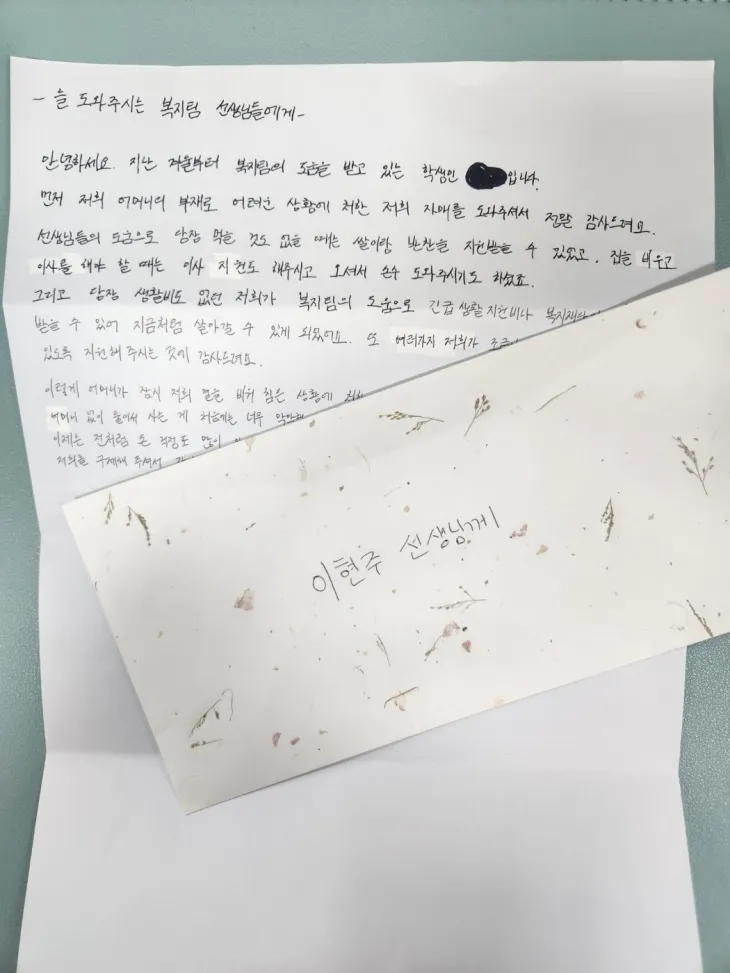 - 늘 도와주시는 복지팀 선생님들에게 -
안녕하세요. 지난 겨울부터 복지팀의 도움을 받고 있는 학생인 입니다.
먼저 저희 어머니의 부재로 어려운 상황에 처한 저희 자매를 도와주셔서 정말 감사드려요.
선생님들의 도움으로 당장 먹을 것도 없을 때는 쌀이랑 반찬을 지원받을 수 있었고, 집을 비우고
이사를 해야 할 때는 이사 지원도 해주시고 오셔서 손수 도와주기도 하셨죠.
그리고 당장 생활비도 없던 저희가 복지팀의 도움으로 긴급생활지원비나 복지재단
받을 수 있어 지금처럼 살아갈 수 있게 되었어요. 또 여러가지 저희가
있도록 지원해 주시는 것에 감사드려요.
이렇게 어머니가 잠시 저희 곁을 비워 힘든 상황에
어머니 없이 둘이서 사는 게 처음에는 너무 막막
이제는 전처럼 돈 걱정도 많이
저희를 구제해 주셔서
이현주 선생님께